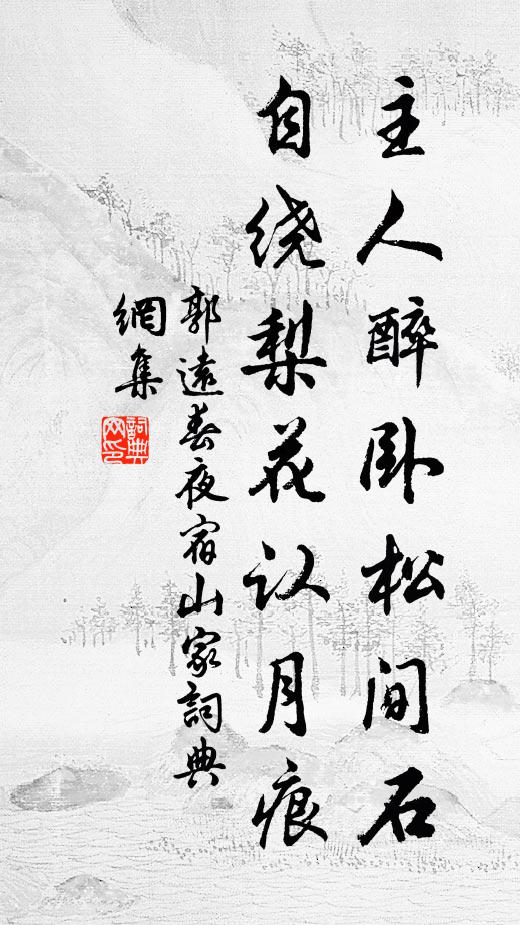 主人醉卧松间石
自绕梨花认月痕
郭遠春夜宿山家詞典
網集
詞典
网印